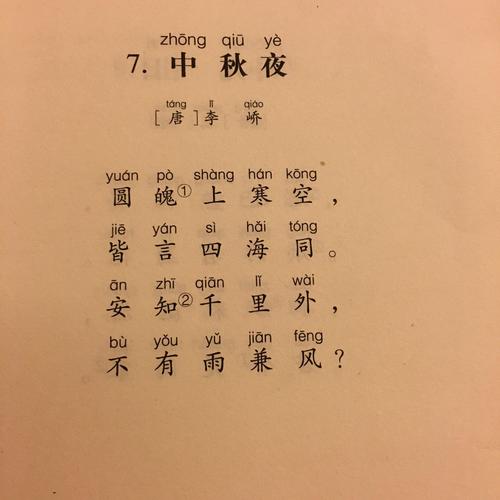 zhōng qiū yè
7. 中秋夜
táng lǐ qiáo
[唐]李 峤
yuán pò shàng hán kōng
圆魄①上寒空，
jiē yán sì hǎi tóng
皆言四海同。
ān zhī qiān lǐ wài
安知②千里外，
bù yǒu yǔ jiān fēng
不有雨兼风？